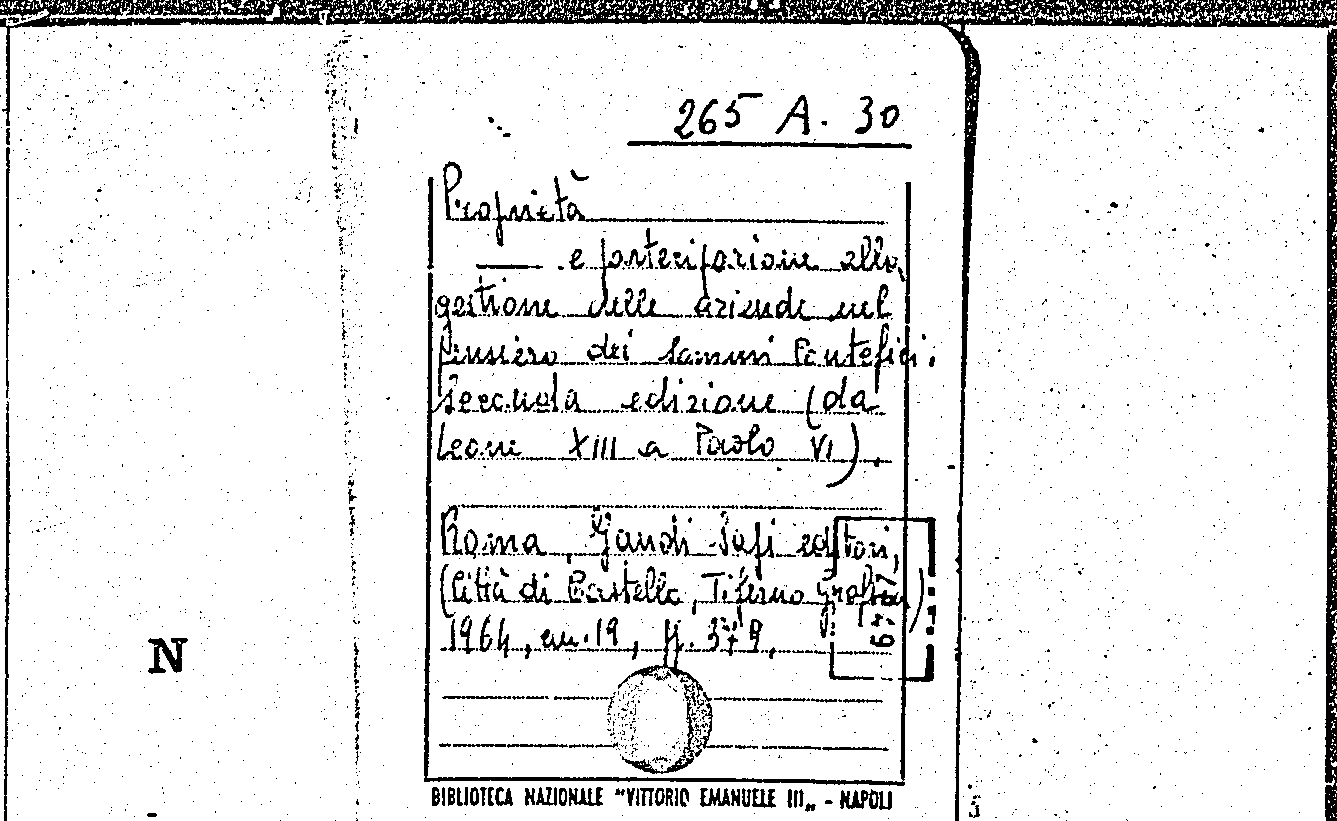 265 A. 30
Proprietà
—— e partecipazione alla
gestione delle aziende nel
pensiero dei Sommi Pontefici.
Seconda edizione (da
Leone XIII a Paolo VI).
Roma, Gaudi Sapi editori,
(Città di Castello, Tiferno Grafica)
1964, cm. 19, pp. 379.
N
BIBLIOTECA NAZIONALE "VITTORIO EMANUELE III„ - NAPOLI